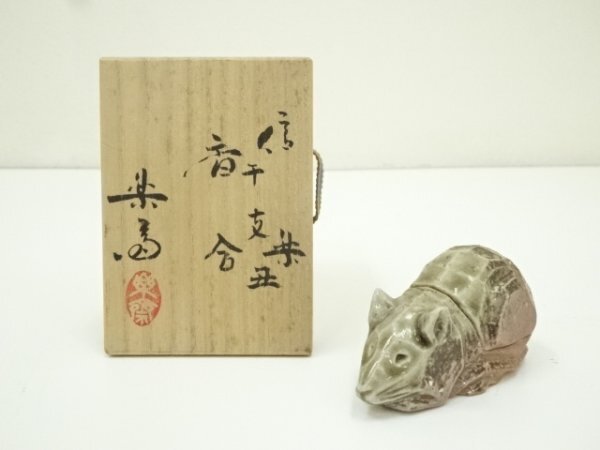 信楽
干支丑
香合
楽斎
樂齋